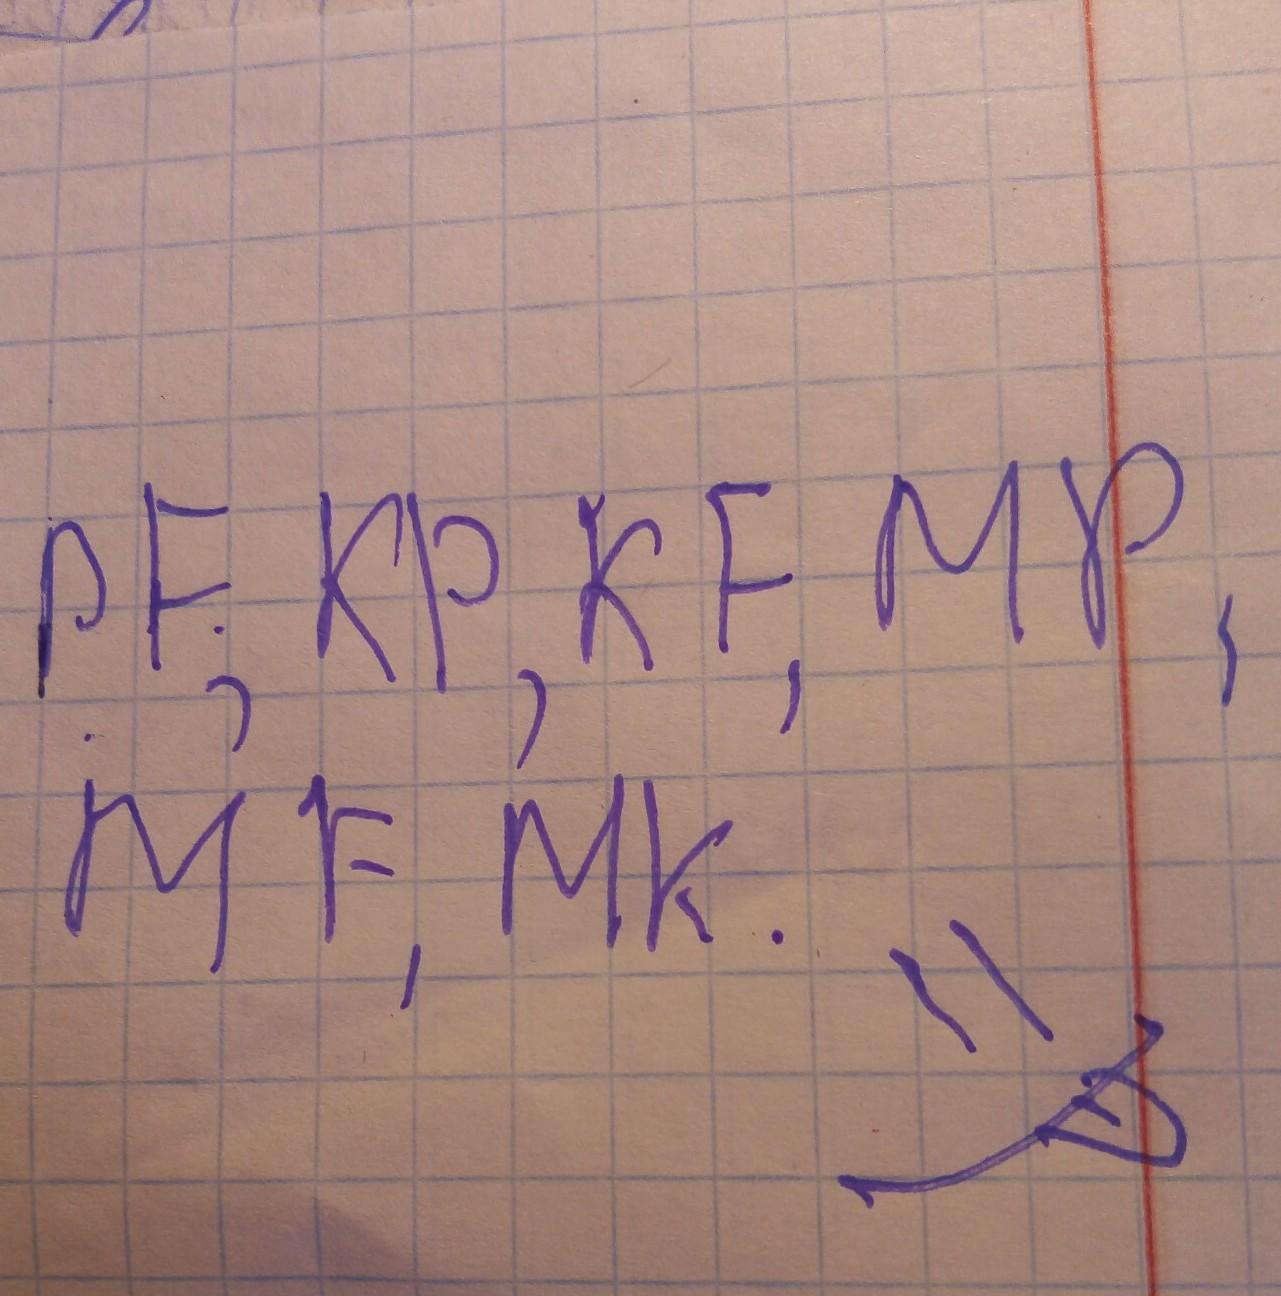 PF, KP, KF, MP,
MF, MK.